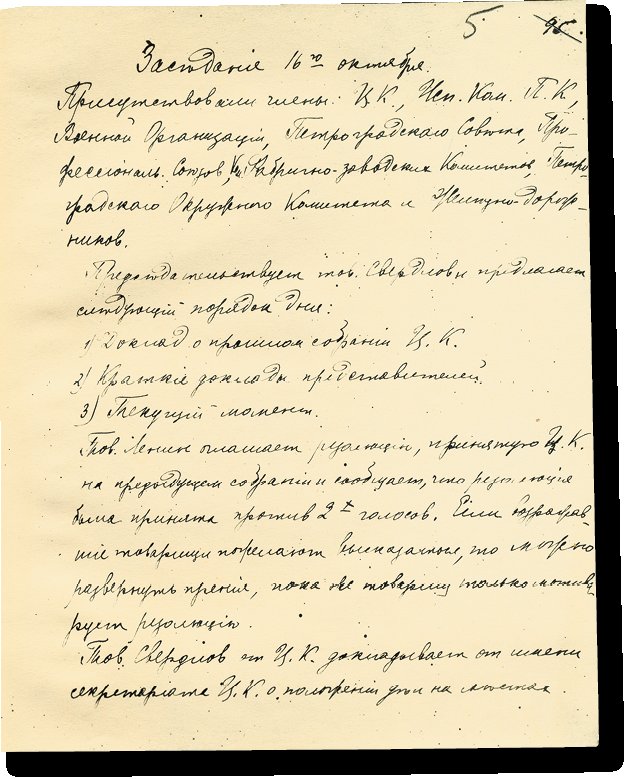 5. 95.
Засѣданіе 16го октября.
Присутствовали члены: Ц. К., Исп. Ком. П. К.,
Военной Организаціи, Петроградскаго Совѣта, Про-
фессіональ. Союзов, Фабрично-заводских Комитетов, Петро-
градскаго Окружного Комитета и Желѣзно-дорож-
ников.
Предсѣдательствует тов. Свердлов и предлагает
слѣдующій порядок дня:
1) Доклад о прошлом собраніи Ц. К.
2) Краткіе доклады представителей.
3) Текущій момент.
Тов. Ленин оглашает резолюцію, принятую Ц. К.
на предыдущем собраніи и сообщает, что резолюція
была принята против 2х голосов. Если возражав-
шіе товарищи пожелают высказаться, то можно
развернуть пренія, пока же товарищ только мотиви-
рует резолюцію.
Тов. Свердлов от Ц. К. докладывает от имени
секретаріата Ц. К. о положеніи дѣл на мѣстах.